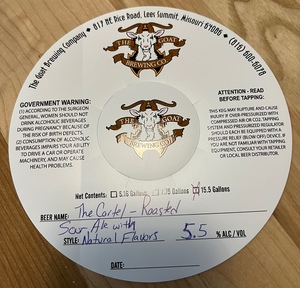 The Goat Brewing Company • 817 NE Rice Road, Lees Summit, Missouri 64086 • (816) 600-6078
THE GOAT
BREWING CO.
GOVERNMENT WARNING:
(1) ACCORDING TO THE SURGEON
GENERAL, WOMEN SHOULD NOT
DRINK ALCOHOLIC BEVERAGES
DURING PREGNANCY BECAUSE OF
THE RISK OF BIRTH DEFECTS.
(2) CONSUMPTION OF ALCOHOLIC
BEVERAGES IMPAIRS YOUR ABILITY
TO DRIVE A CAR OR OPERATE
MACHINERY, AND MAY CAUSE
HEALTH PROBLEMS.
THE GOAT
BREWING CO.
ATTENTION - READ
BEFORE TAPPING:
THIS KEG MAY RUPTURE AND CAUSE
INJURY IF OVER-PRESSURIZED WITH
COMPRESSED AIR OR CO2. TAPPING
SYSTEM AND PRESSURE REGULATOR
SHOULD EACH BE EQUIPPED WITH A
PRESSURE RELIEF (BLOW OFF) DEVICE. IF
YOU ARE NOT FAMILIAR WITH TAPPING
EQUIPMENT, CONSULT YOUR RETAILER
OR LOCAL BEER DISTRIBUTOR.
Net Contents: 5.16 Gallons 7.75 Gallons 15.5 Gallons
BEER NAME: The Cartel - Roasted
Sour Ale with
STYLE: Natural Flavors 5.5 % ALC / VOL
DATE: